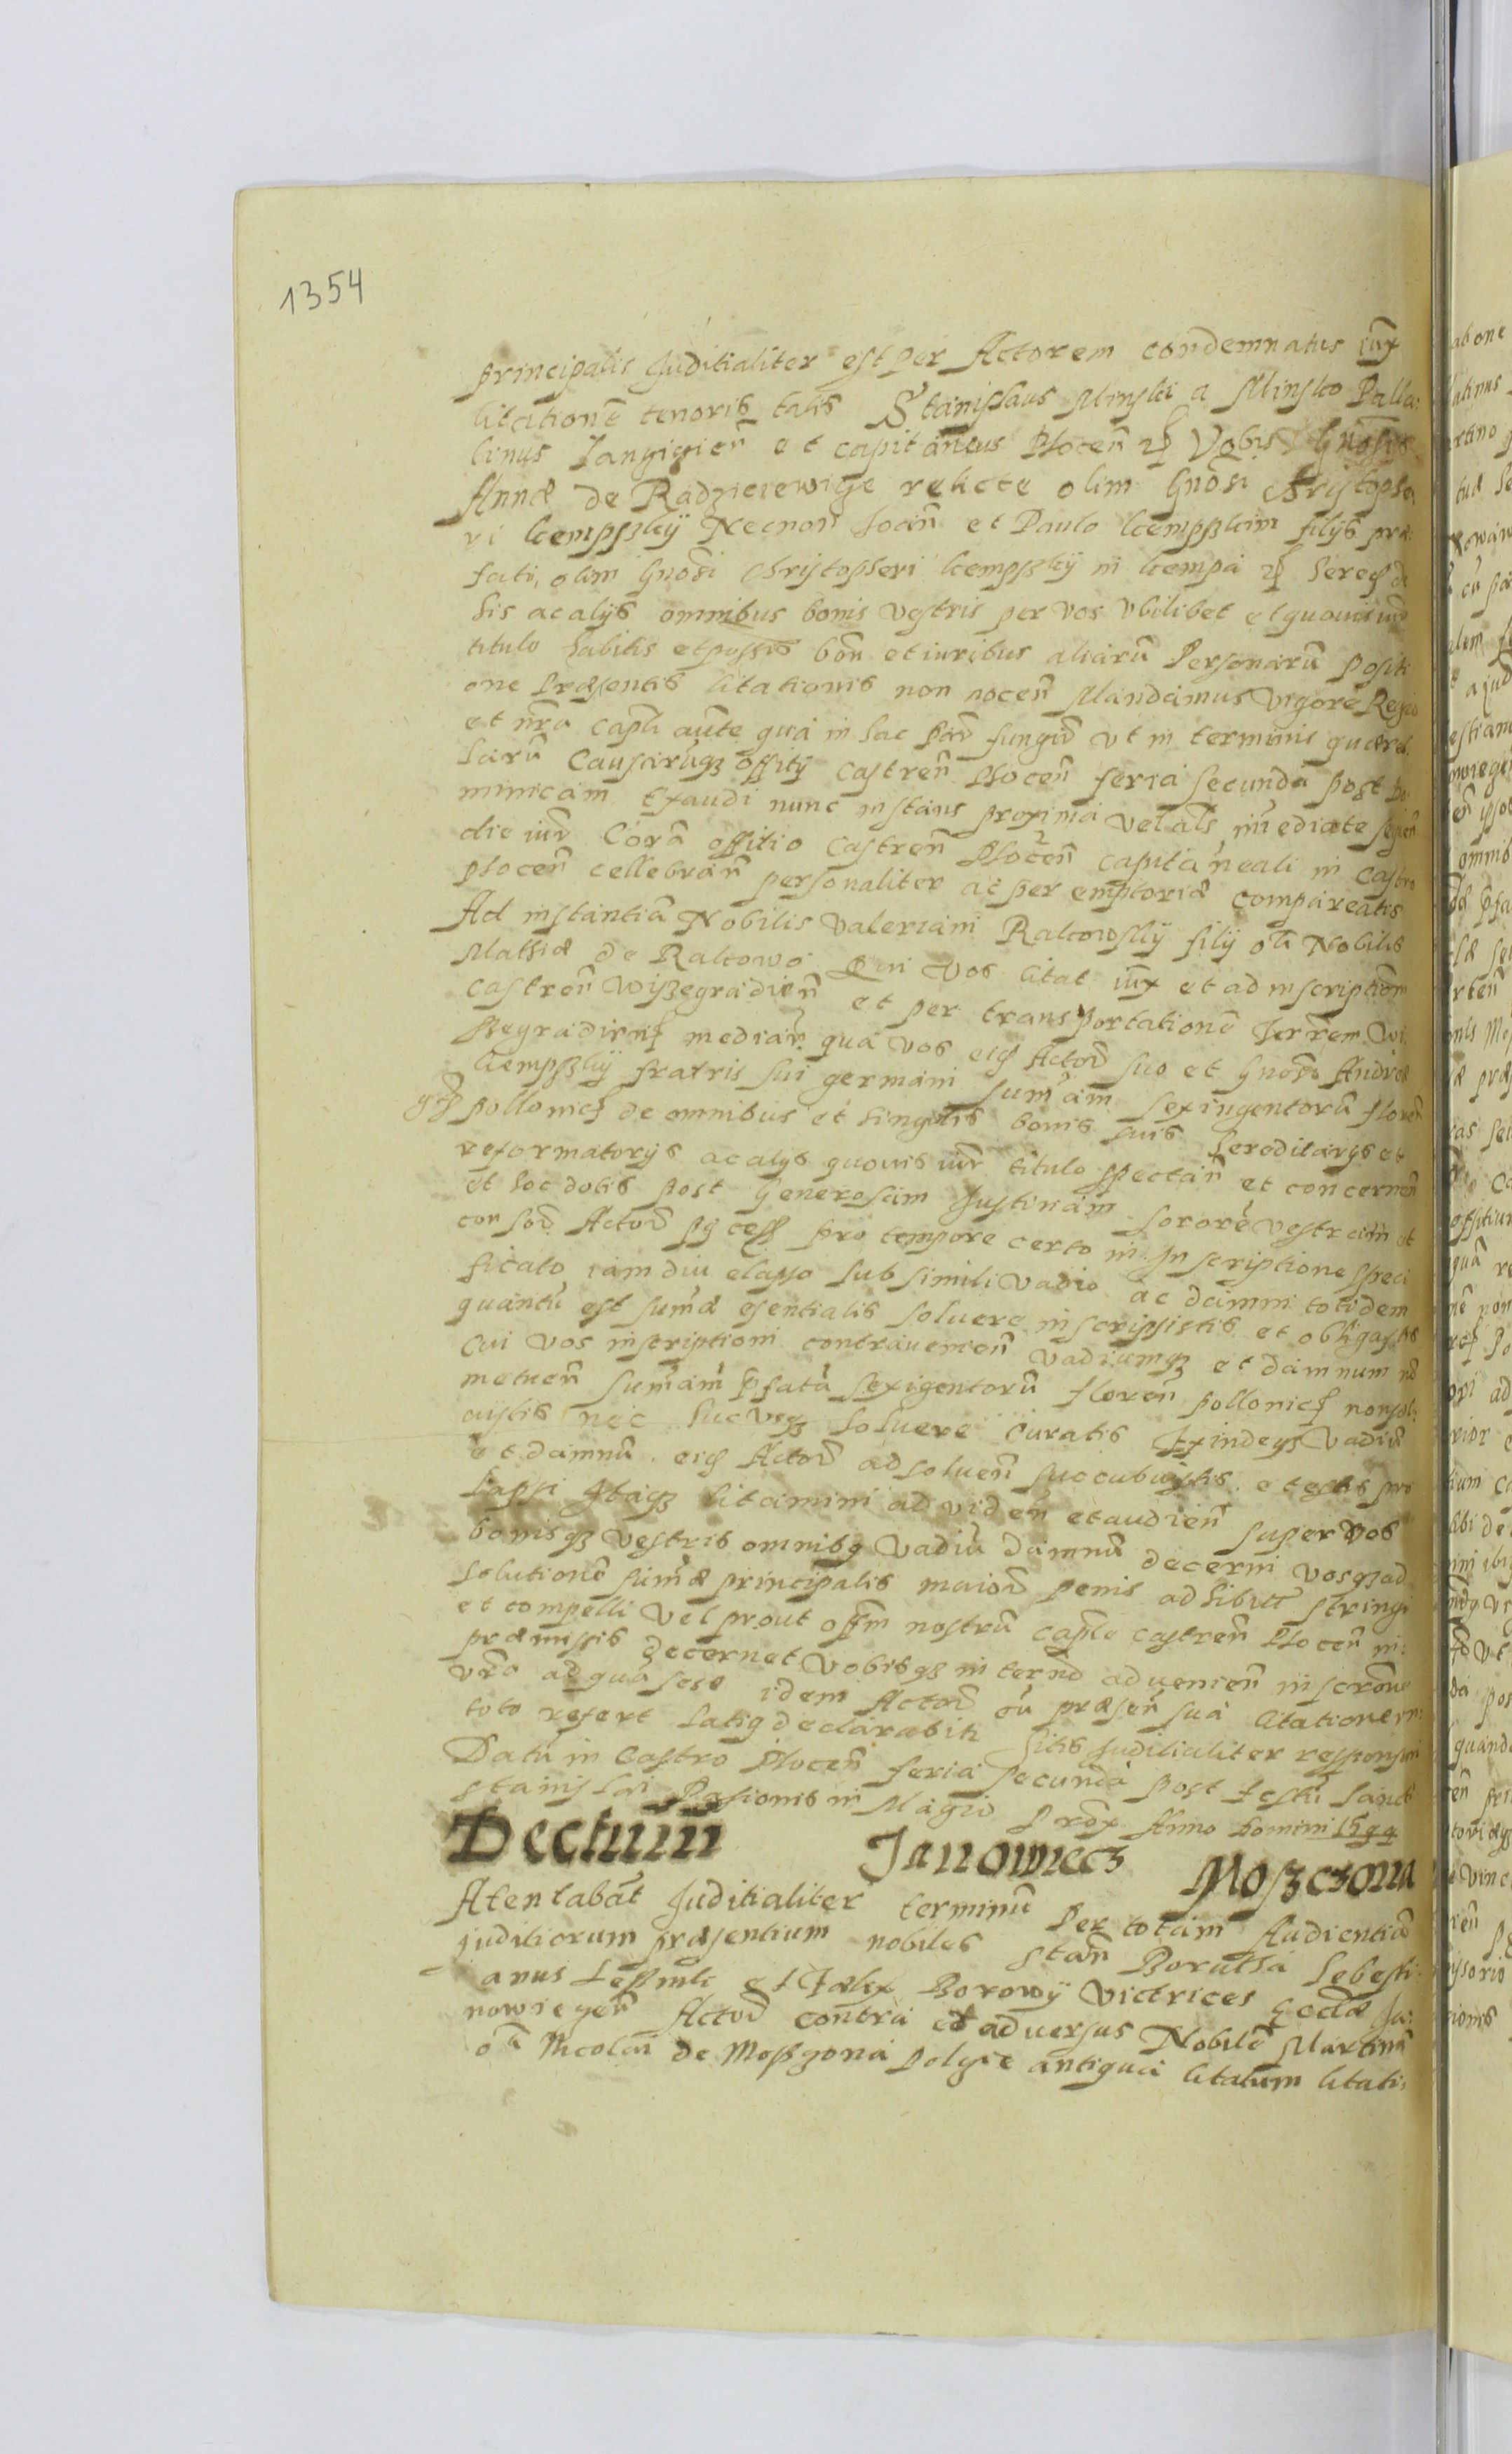 1354
principalis Juditialiter est per Actorem condemnatus iux̃
litationẽ tenoris talis Stanislaus Minski a Minsko Palla:
tinus Langiciẽn et capitaneus Plocen̄ Vobis Gnosis
Annæ de Radziciewicze relicte olim Gnosi Christophe
ri kempszky Necnon Joan̄ et Paulo kempszkim filijs præ
fati, olim Gnosi Christopheri kempszky in kempa hered de
his ac alijs omnibus bonis vestris per vos vbilibet et quouis iur̄
titulo habitis et possess̄ bon̄ et iuribus aliarũ Personarũ positi
one Præsentis litationis non nocen̄ Mandamus vigore Regia
et nr̄a capl̃i aũte qua in hac par̄ fungir̄ vt in terminis quære
larũ Causarũqz offitij castren̄ Plocen̄ feria secunda post Do
minicam Exaudi nunc instans proxima vel als im̄ediate sequen̄
die iur̄ Corã offitio castren̄ Plocen̄ capitaneali in castro
Plocen̄ cellebran̄ personaliter ac per emptoriæ compareatis
Ad instantiã Nobilis Valeriani Rakowsky filij olĩ Nobilis
Mathiæ de Rakowo Qui vos litat iux̃ et ad inscription̄
castren̄ Wiszegradien̄ et per transportationẽ Terrem̄ Wi
szegradien̄ median̄ qua vos eid Actor̄ suo et Gnoso Andreæ
kempszky fratris sui germani sum̄am sexingentorũ floren̄
pollonic de omnibus et singulis bonis suis hereditarys et
reformatorys ac alys quouis iur̄ titulo spectan̄ et concernen̄
et hoc dotis post Generosam Justinam sororẽ vestram et
consor̄ Actor̄ pro tempore certo in Inscriptione speci
ficato iam diu elapso sub simili vadio ac damni totidem
quantũ est sum̄æ esentialis soluere inscripsistis et obligastis
Cui vos inscriptioni contrauenien̄ vadiumqz et damnum nõ
metuen̄ sum̄am p̃fatã sexigentorũ floren̄ pollonic non sol:
uistis nec huc vsqz soluere curatis Exindeqz vadiũ
et damnũ eid Actor̄ ad soluen̄ succubuistis et estis pro
lapsi Itaqz litamini ad viden̄ et audien̄ super vos
bonisqz vestris omnibq vadiũ damnũ decerni vosqz ad
solutionẽ sum̄æ principalis maior̄ penis adhibitt̄ stringi
et compelli vel prout offm̄ nostrũ capl̃e castren̄ Plocen̄ in
præmissis decernet Vobisqz in term̄o aduenien̄ inscr̄one
vr̄a ad qua sese idem Actor̄ cũ præsen̄ sua litatione in
toto refert latiq declarabitĩ sitis Juditialiter responsuri
Datũ in Castro Plocen̄ feria secunda post festũ Sancti
Stanislai Pasionis in Magio Prox̄ Anno Domini 1599
Dectum Janowiecz Moszczona
Atentabãt Juditialiter terminũ Per totam Audientiã
juditiorum præsentium nobiles Stan̄ Borutha Sebesti:
anus et Fælix Borowy Victrices Ecclæ Ja:
nowiegen̄ Actor̄ contra et adversus Nobilẽ Martinũ
olĩ Nicolai de Moszzona antiqua litatum litati: